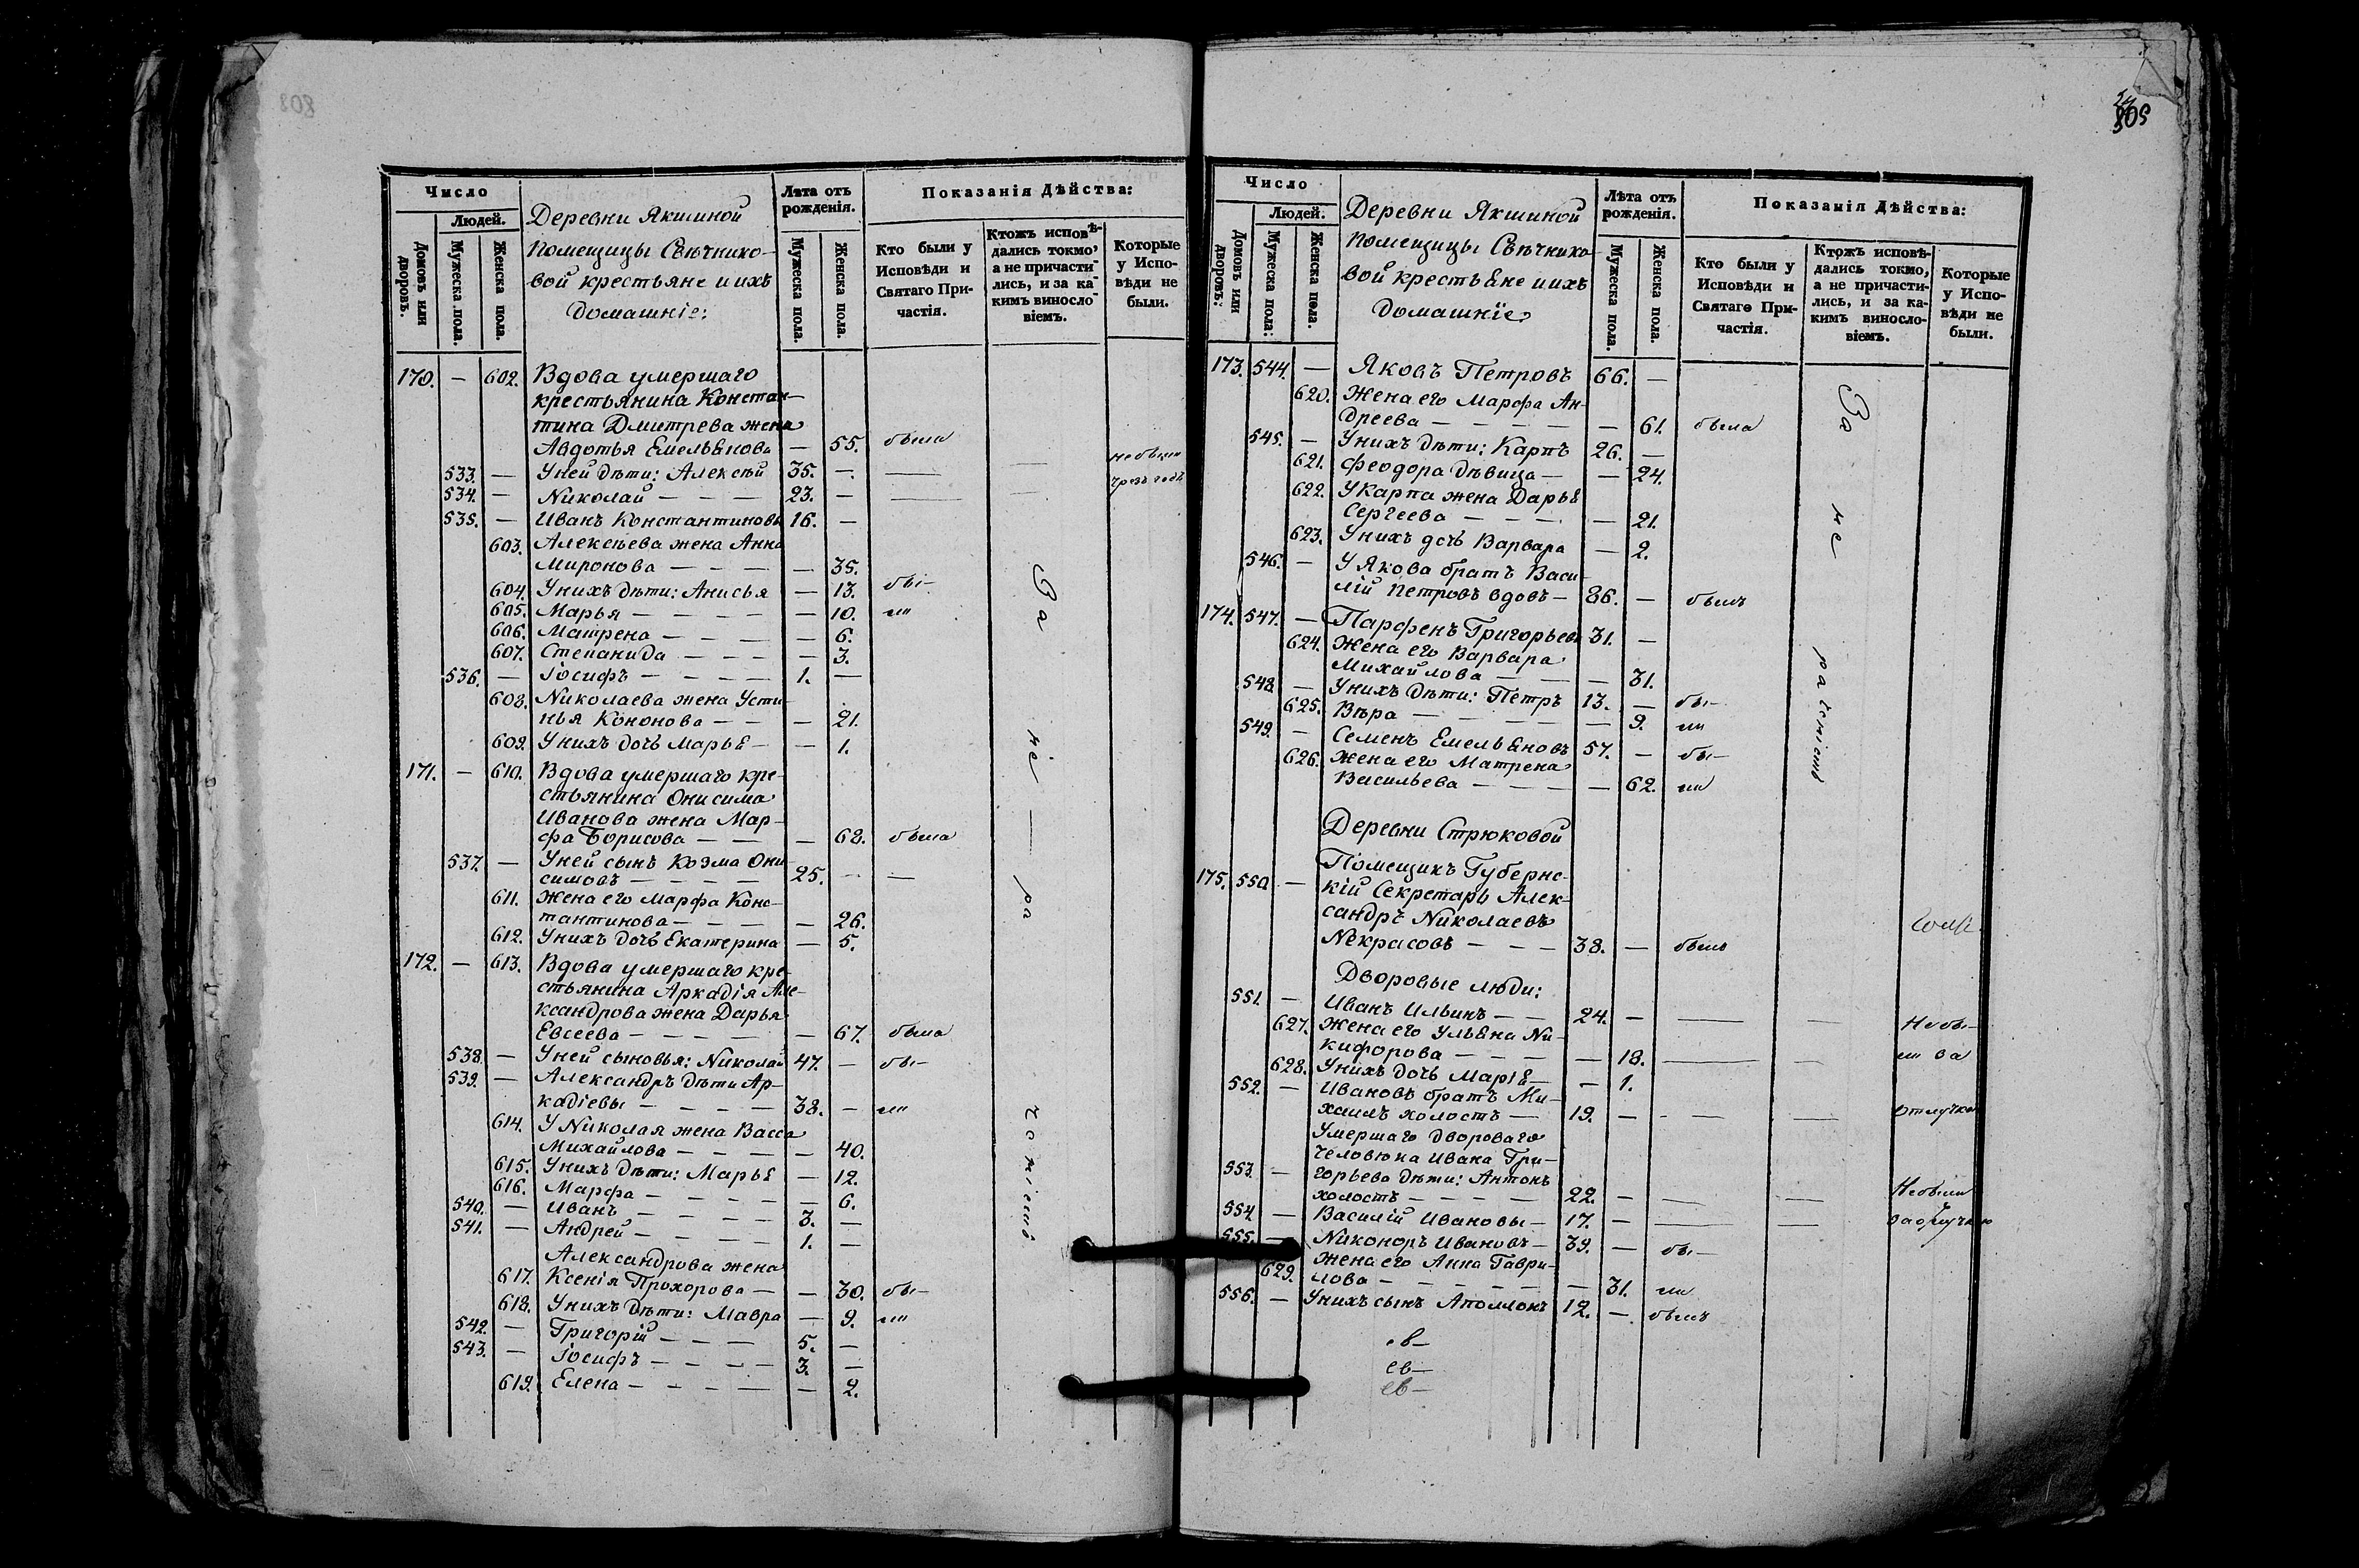 803
Число
Людей.
Домовъ или дворовъ.
Мужеска пола.
Женска пола.
Деревни Якшиной
помещицы Свѣчнико-
вой крестьяне и ихъ
домашніе:
Лѣта отъ рожденія.
Мужеска пола.
Женска пола.
Показанія Дѣйства:
Кто были у Исповѣди и Святаго Причастія.
Ктожъ исповѣдались токмо, а не причастились, и за какимъ винословіемъ.
Которые у Исповѣди не были.
170. — 602. Вдова умершаго
крестьянина Констан-
тина Дмитрева жена
Авдотья Емельянова — 55. была
533. — У ней дѣти: Алексѣй 35. — не были
534. — Николай — — — 23. — чрезъ
535. — Иванъ Константиновы 16. —
603. Алексѣева жена Анна
Миронова — — — — 35.
604. У нихъ дѣти: Анисья — 13. бы-
605. Марья — — — — 10. ли
606. Матрена — — — — 6.
607. Степанида — — — — 3.
536. — Іосифъ — — — — 1. —
608. Николаева жена Усти-
нья Кононова — — — 21.
609. У нихъ дочь Марья — — 1.
171. — 610. Вдова умершаго кре-
стьянина Онисима
Иванова жена Мар-
фа Борисова — — — 62. была
537. — У ней сынъ Козма Они-
симовъ — — — — 25. — —
611. Жена его Марфа Конс-
тантинова — — — — 26.
612. У нихъ дочь Екатерина — 5.
172. — 613. Вдова умершаго кре-
стьянина Аркадія Але-
ксандрова жена Дарья
Евсеева — — — — — 67. была
538. — У ней сыновья: Николай 47. — бы-
539. — Александръ дѣти Ар-
кадіевы — — — — 38. — ли
614. У Николая жена Васса
Михайлова — — — — 40.
615. У нихъ дѣти: Марья — 12.
616. Марфа — — — — — 6.
540. — Иванъ — — — — 3. —
541. — Андрей — — — — 1. —
Александрова жена
617. Ксенія Прохорова — — 30. бы-
618. У нихъ дѣти: Мавра — 9. ли
542. — Григорій — — — 5. —
543. — Іосифъ — — — — 3. —
619. Елена — — — — — 2.
За
ра
805
Число
Людей.
Домовъ или дворовъ.
Мужеска пола.
Женска пола.
Деревни Якшиной
помещицы Свѣчнико-
вой крестьяне и ихъ
домашніе:
Лѣта отъ рожденія.
Мужеска пола.
Женска пола.
Показанія Дѣйства:
Кто были у Исповѣди и Святаго Причастія.
Ктожъ исповѣдались токмо, а не причастились, и за какимъ винословіемъ.
Которые у Исповѣди не были.
173. 544. — Яковъ Петровъ 66. —
620. Жена его Марфа Ан-
дреева — — — — — 61. была
545. — У нихъ дѣти: Карпъ 26. —
621. Феодора дѣвица — — 24.
622. У Карпа жена Дарья
Сергеева — — — — 21.
623. У нихъ дочь Варвара — 2.
546. — У Якова братъ Васи-
лій Петровъ вдовъ — 86. — былъ
174. 547. — Парфенъ Григорьевъ 31. —
624. Жена его Варвара
Михайлова — — — 31.
548. — У нихъ дѣти: Петръ 13. — бы-
625. Вѣра — — — — — 9. ли
549. — Семенъ Емельяновъ 57. — бы-
626. Жена его Матрена
Васильева — — — — 62. ли
За
не
Деревни Стрюковой
Помещикъ Губернс-
175. 550. — кій Секретарь Алек-
сандръ Николаевъ
Некрасовъ — — — 38. — былъ
Дворовые люди:
551. — Иванъ Ильинъ — — 24. — — — Не бы-
627. Жена его Ульяна Ни-
кифорова — — — — 18. — — ли за
628. У нихъ дочь Марія — — 1.
552. — Ивановъ братъ Ми-
хаилъ холостъ — 19. — — — отлучкою
Умершаго двороваго
человека Ивана Гри-
553. — горьева дѣти: Антонъ
холостъ — — — — 22. — — — Не были
554. — Василій Ивановы — 17. — — — за отлучкою
555. — Никоноръ Ивановъ — 39. — бы-
Жена его Анна Гаври-
629. лова — — — — — — 31. ли
556. — У нихъ сынъ Аполлонъ 12. — былъ